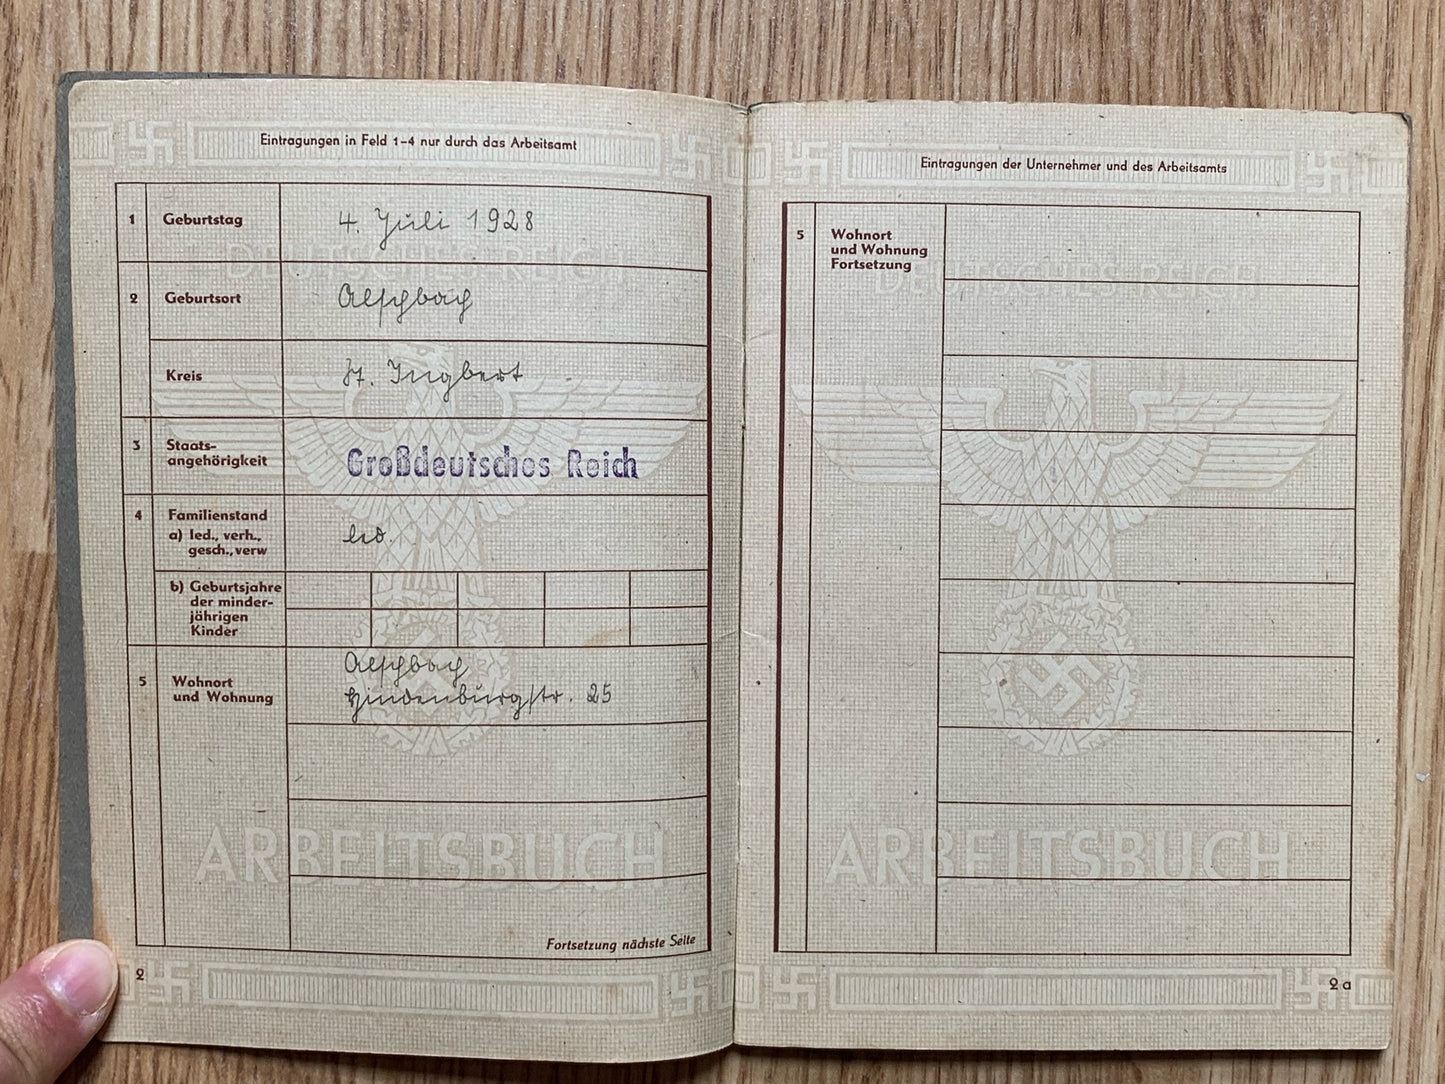 Eintragungen in Feld 1-4 nur durch das Arbeitsamt
1 Geburtstag 4. Juli 1928
DEUTSCHES REICH
2 Geburtsort Alschbach
Kreis St. Ingbert
3 Staats-
angehörigkeit Großdeutsches Reich
4 Familienstand
a) led., verh., led.
gesch., verw
b) Geburtsjahre
der minder-
jährigen
Kinder
5 Wohnort Alschbach
und Wohnung Hindenburgstr. 25
ARBEITSBUCH
Fortsetzung nächste Seite
2
Eintragungen der Unternehmer und des Arbeitsamts
5 Wohnort
und Wohnung
Fortsetzung
DEUTSCHES REICH
ARBEITSBUCH
2 a